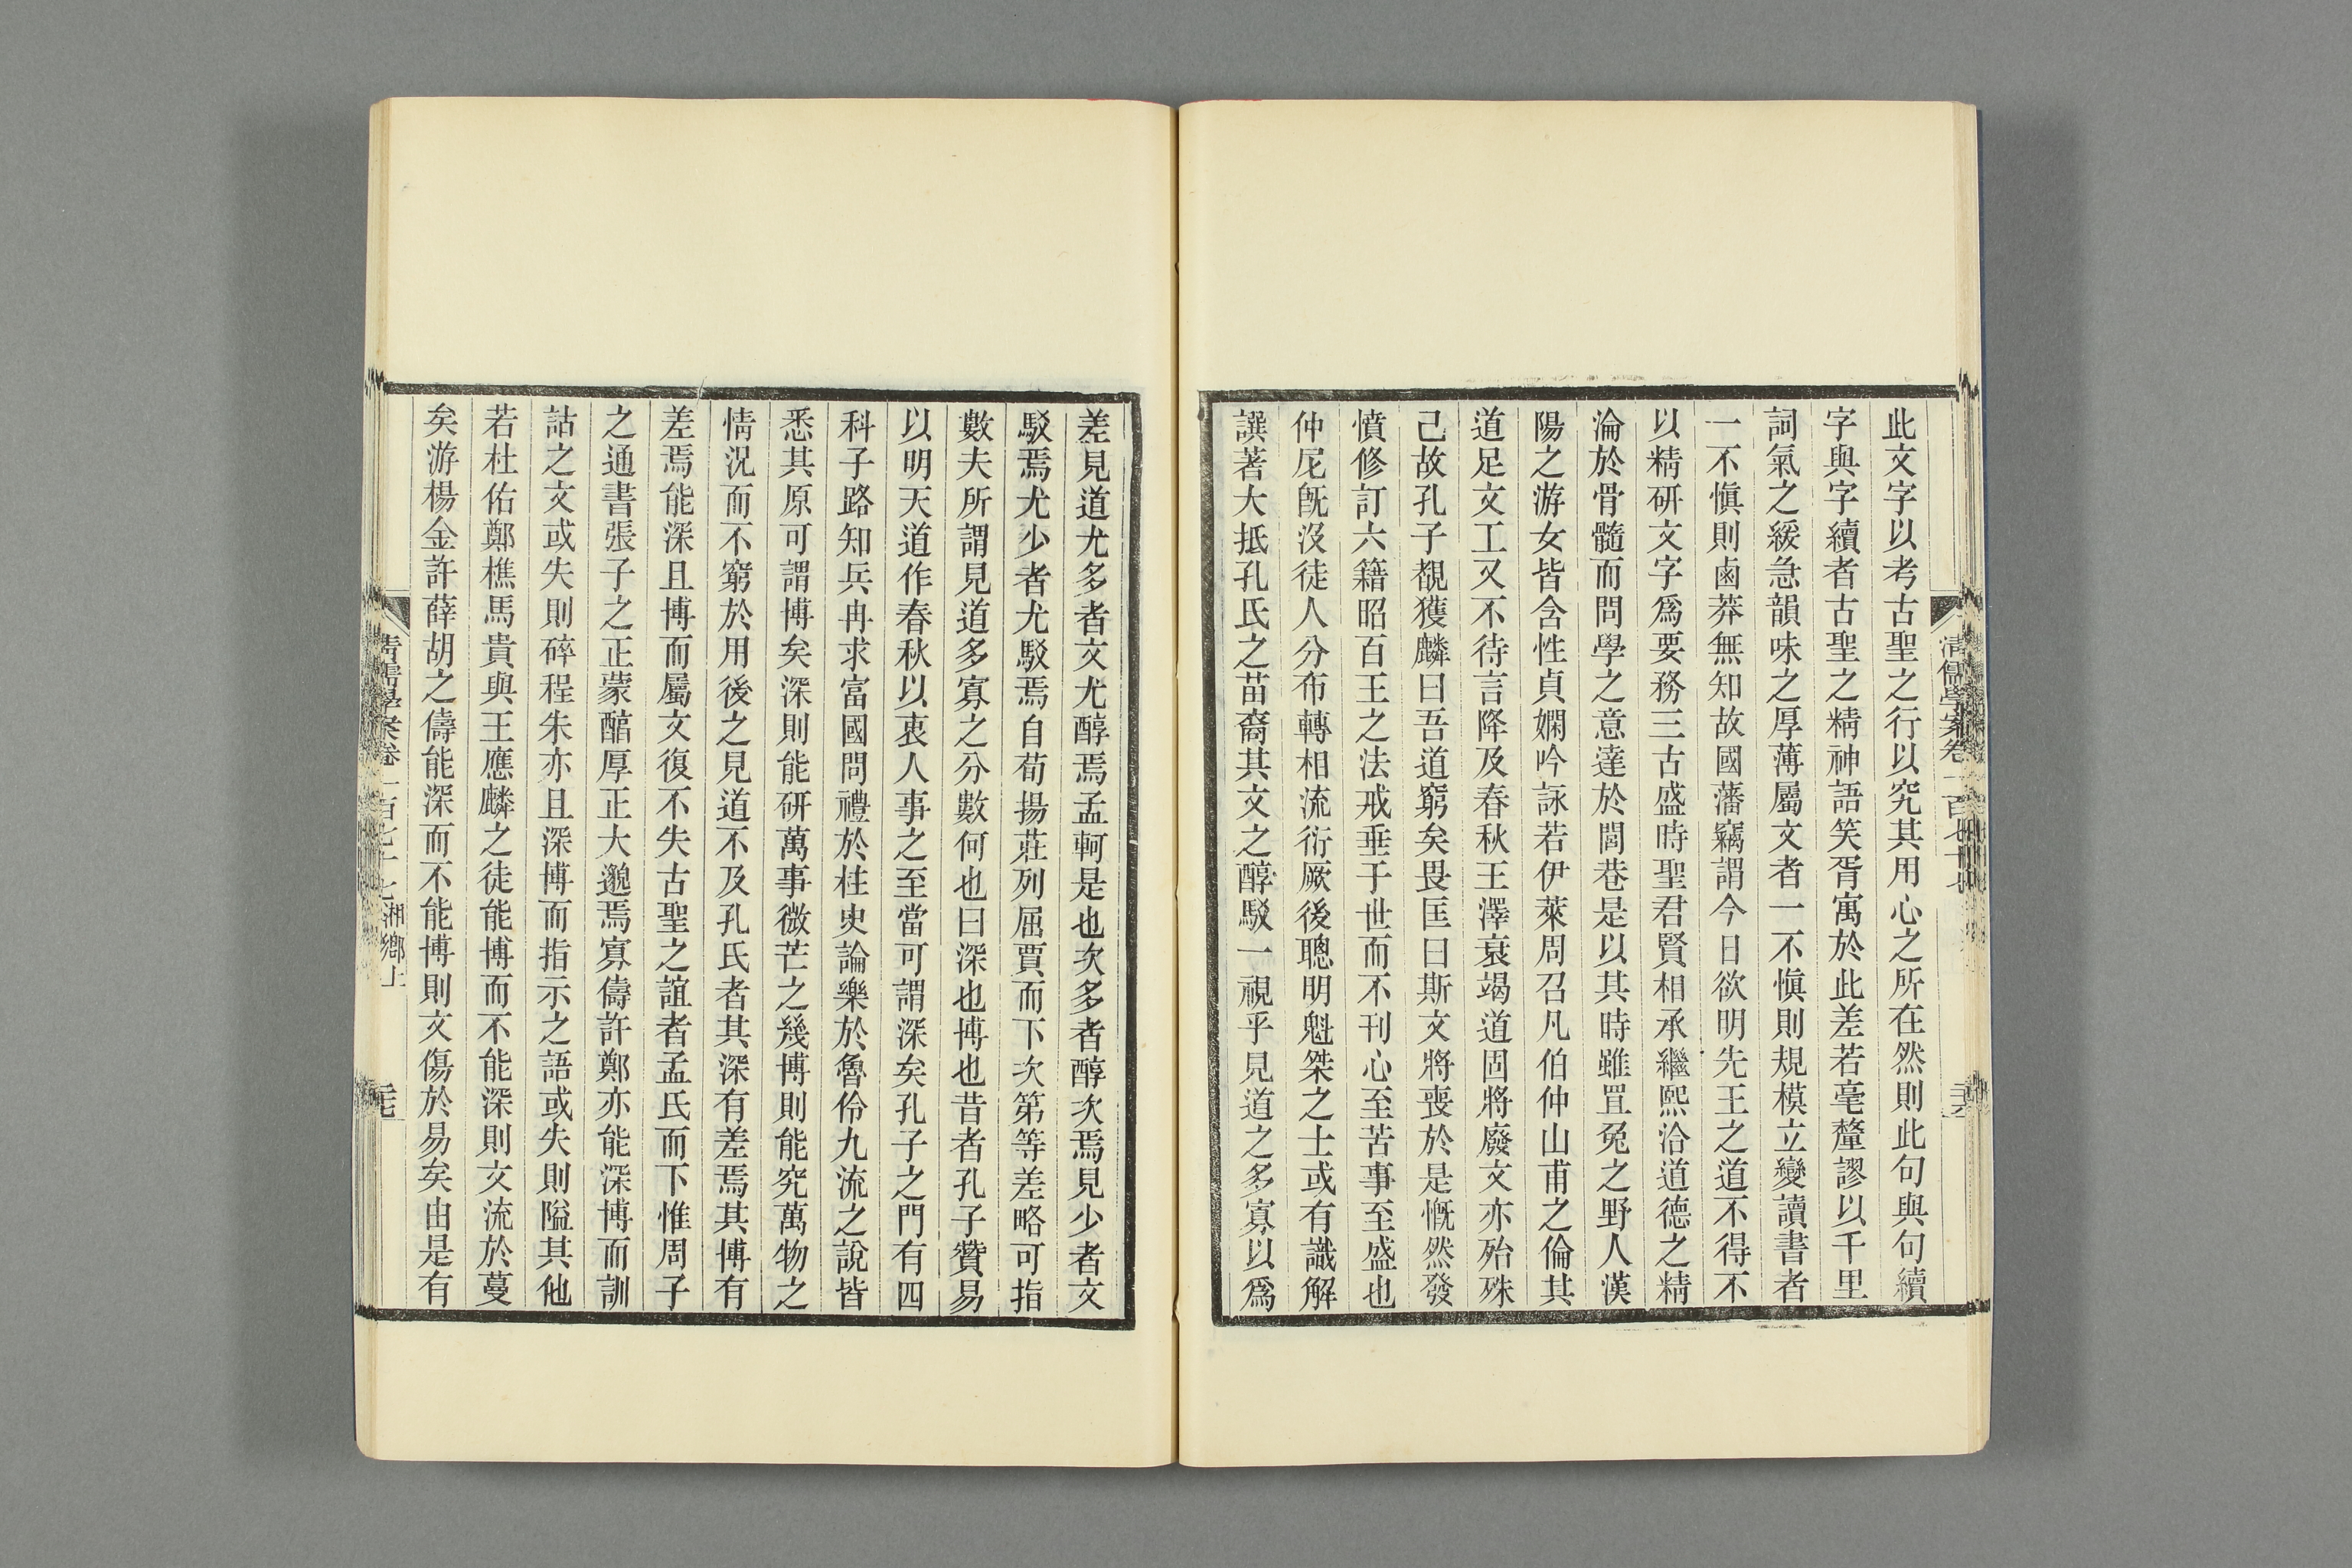 此文字以考古聖之行以究其用心之所在然則此句與句續
字與字續者古聖之精神語笑胥寓於此差若毫釐謬以千里
詞氣之緩急韻味之厚薄屬文者一不愼則規模立變讀書者
一不愼則鹵莽無知故國藩竊謂今日欲明先王之道不得不
以精研文字爲要務三古盛時聖君賢相承繼熙洽道德之精
淪於骨髓而問學之意達於閭巷是以其時雖罝兔之野人漢
陽之游女皆含性貞嫻吟詠若伊萊周召凡伯仲山甫之倫其
道足文工又不待言降及春秋王澤衰竭道固將廢文亦殆殊
己故孔子覩獲麟曰吾道窮矣畏匡曰斯文將喪於是慨然發
憤修訂六籍昭百王之法戒垂于世而不刊心至苦事至盛也
仲尼旣沒徒人分布轉相流衍厥後聰明魁桀之士或有識解
譔著大抵孔氏之苗裔其文之醇駁一視乎見道之多寡以爲
清儒學案卷一百七十七
差見道尤多者文尤醇焉孟軻是也次多者醇次焉見少者文
駁焉尤少者尤駁焉自荀揚莊列屈賈而下次第等差略可指
數夫所謂見道多寡之分數何也曰深也博也昔者孔子贊易
以明天道作春秋以衷人事之至當可謂深矣孔子之門有四
科子路知兵冉求富國問禮於柱史論樂於魯伶九流之說皆
悉其原可謂博矣深則能研萬事微芒之幾博則能究萬物之
情況而不窮於用後之見道不及孔氏者其深有差焉其博有
差焉能深且博而屬文復不失古聖之誼者孟氏而下惟周子
之通書張子之正蒙醇厚正大邈焉寡儔許鄭亦能深博而訓
詁之文或失則碎程朱亦且深博而指示之語或失則隘其他
若杜佑鄭樵馬貴與王應麟之徒能博而不能深則文流於蔓
矣游楊金許薛胡之儔能深而不能博則文傷於易矣由是有
清儒學案卷一百七十七 湘鄉上